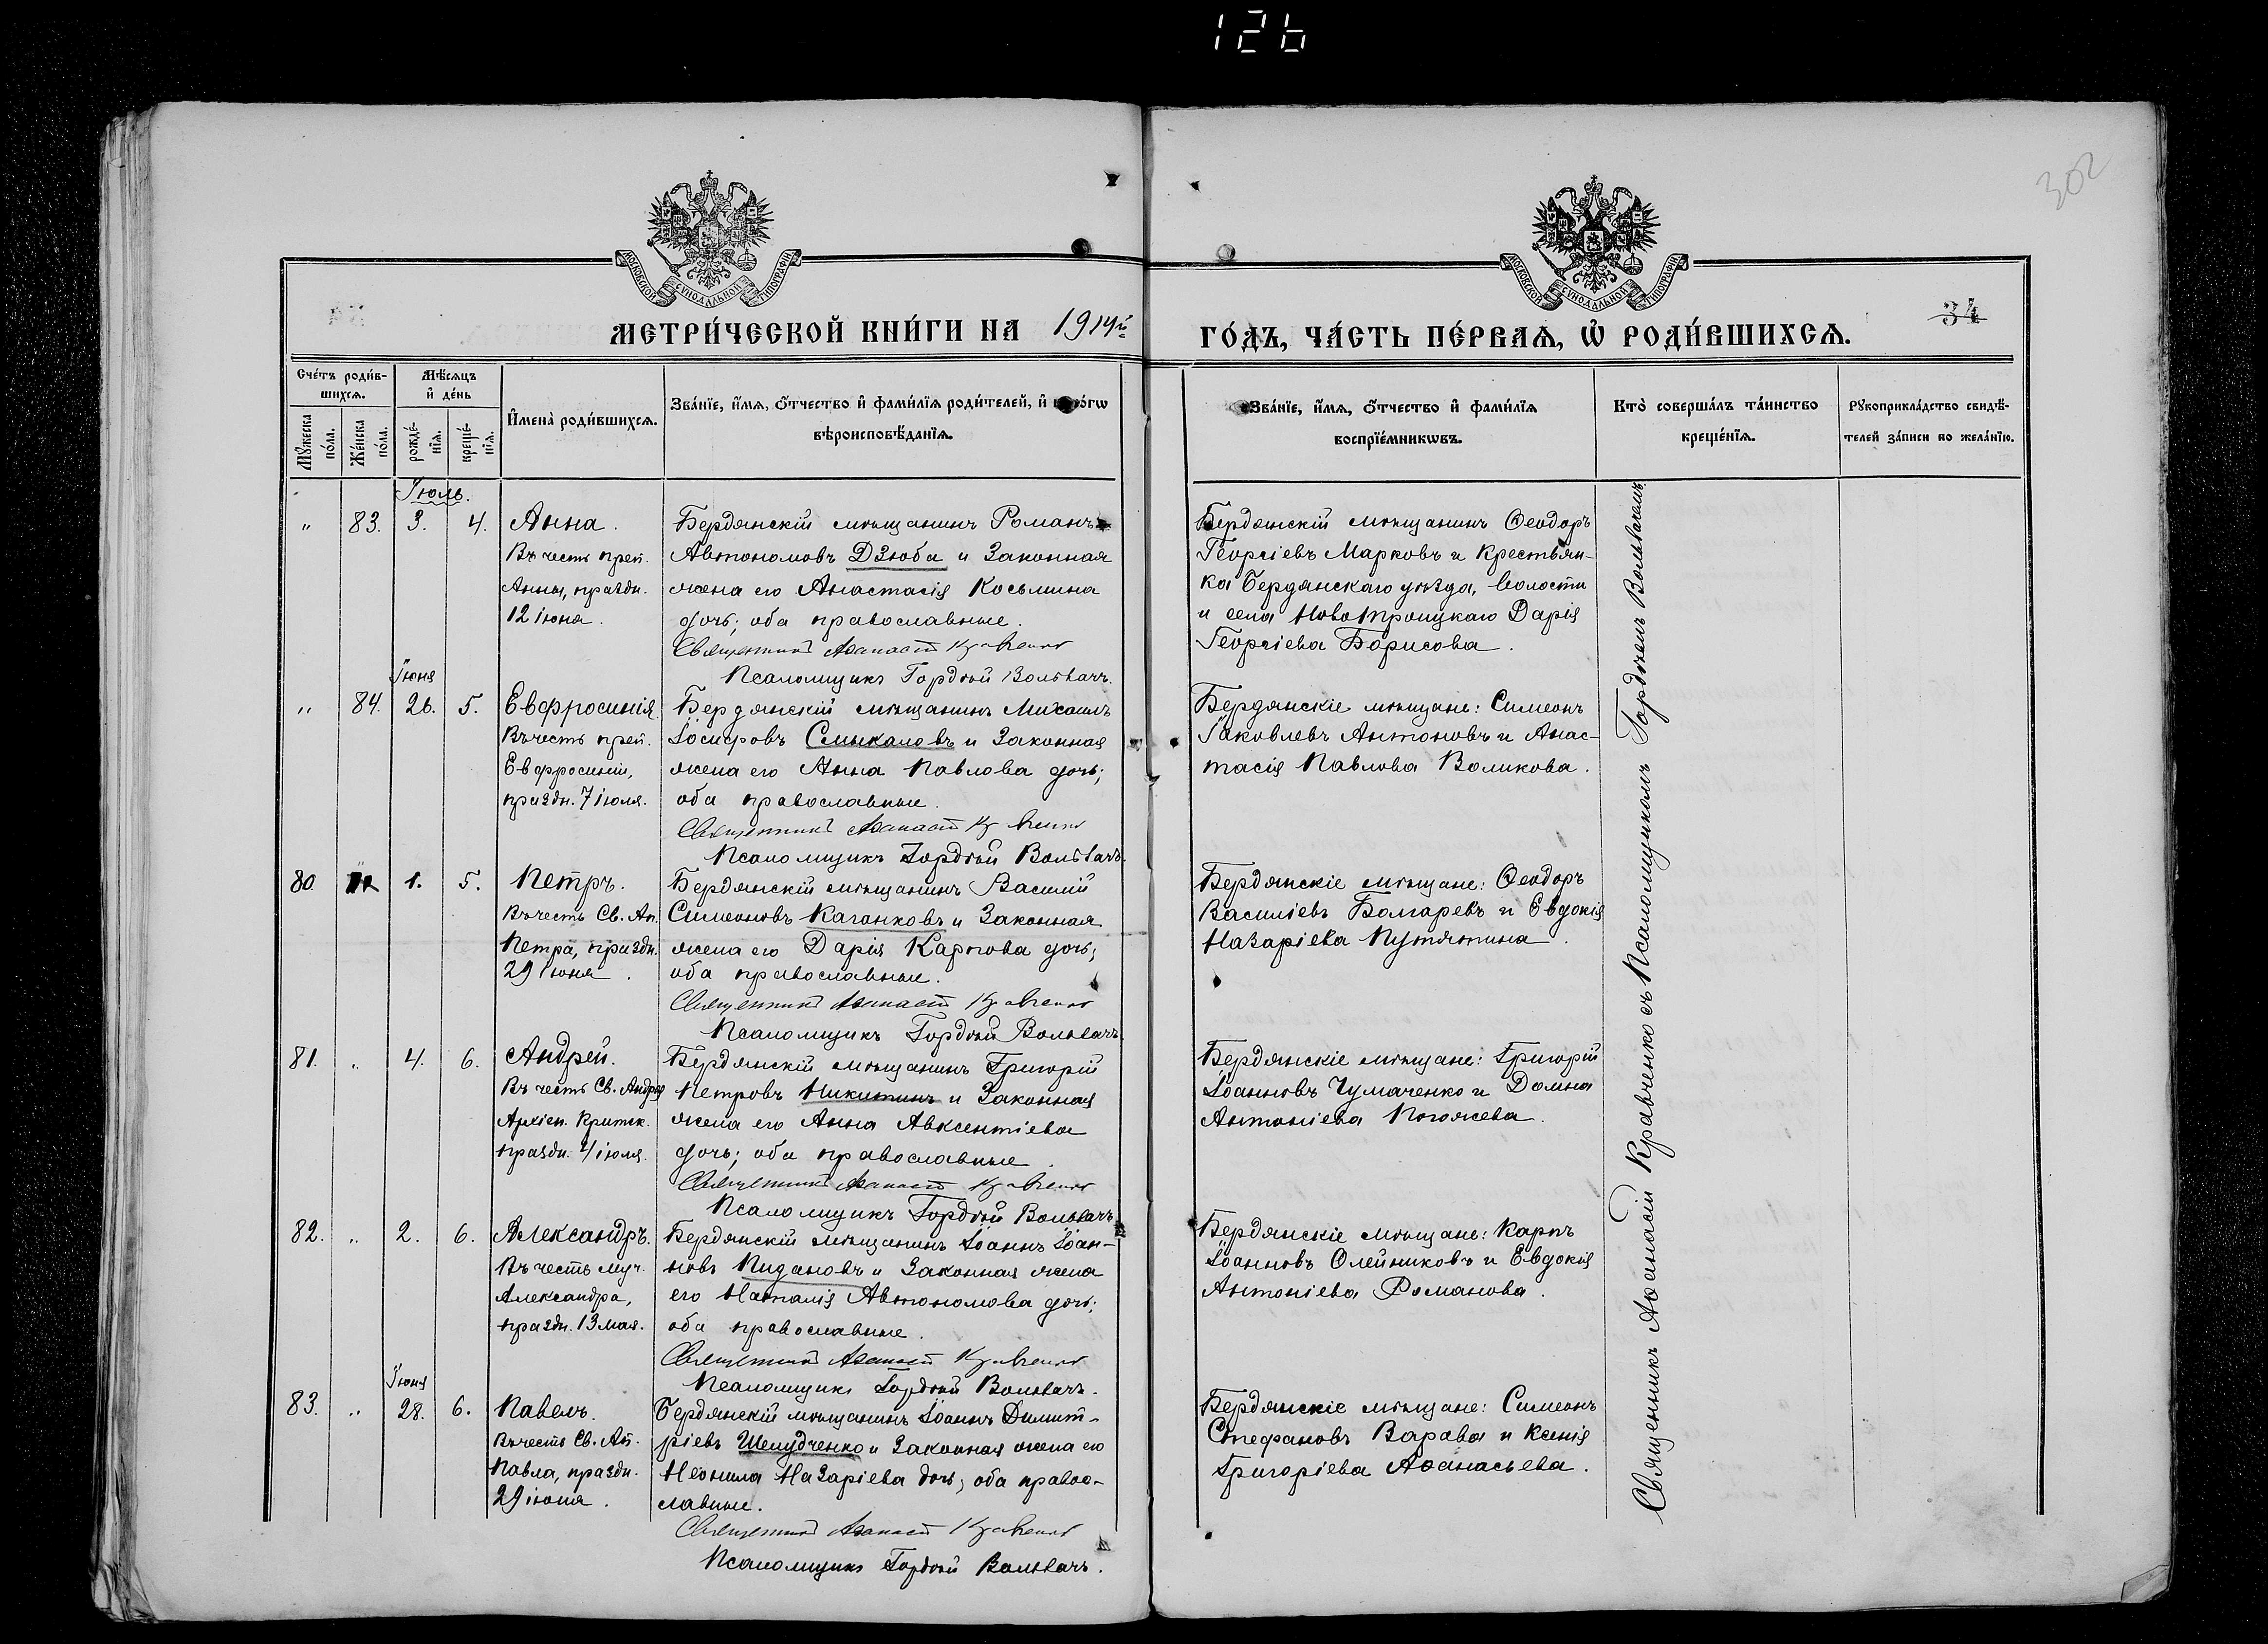 126
302
МОСКОВСКОЙ СУНОДАЛЬНОЙ ТИПОГРАФІИ
МОСКОВСКОЙ СУНОДАЛЬНОЙ ТИПОГРАФІИ
МЕТРИ́ЧЕСКОЙ КНИ́ГИ НА 1914й
ГО́ДЪ, ЧА́СТЬ ПЕ́РВАѦ, Ѡ҆ РОДИ́ВШИХСѦ.
34
Сче́тъ роди́в-
шихсѧ.
Мѣ́сѧцъ
и҆ де́нь
Мꙋ́жеска
по́ла.
Же́нска
по́ла.
рожде́-
нїѧ.
креще́-
нїѧ.
И҆мена̀ роди́вшихсѧ.
Зва́нїе, и҆́мѧ, ѻ҆́тчество и҆ фами́лїѧ роди́телей, и҆
вѣроисповѣ́данїѧ.
Зва́нїе, и҆́мѧ, ѻ҆́тчество и҆ фами́лїѧ
воспрїе́мникѡвъ.
Кто̀ соверша́лъ та́инство
креще́нїѧ.
Рꙋкоприкла́дство свидѣ́-
телей за́писи по жела́нїю.
Іюль.
„ 83. 3. 4. Анна.
Въ честь преп.
Анны, праздн.
12 іюня.
Бердянскій мѣщанинъ Романъ
Автономовъ Дзюба и законная
жена его Анастасія Косьмина
дочь; оба православные.
Священникъ Аѳанасій Кравченко
Псаломщикъ Гордѣй Вольвачъ.
Бердянскій мѣщанинъ Ѳеодоръ
Георгіевъ Марковъ и крестьян-
ка Бердянскаго уѣзда, волости
и села Новотроицкаго Дарія
Георгіева Борисова.
Іюня
„ 84. 26. 5. Евфросинія.
Въ честь преп.
Евфросиніи,
праздн. 7 іюля.
Бердянскій мѣщанинъ Михаилъ
Іосифовъ Смыкаловъ и законная
жена его Анна Павлова дочь;
оба православные.
Священникъ Аѳанасій Кравченко
Псаломщикъ Гордѣй Вольвачъ.
Бердянскіе мѣщане: Симеонъ
Іаковлевъ Антоновъ и Анас-
тасія Павлова Воликова.
80. 1. 5. Петръ.
Въ честь Св. Ап.
Петра, праздн.
29 іюня.
Бердянскій мѣщанинъ Василій
Симеоновъ Каганковъ и законная
жена его Дарія Карпова дочь;
оба православные.
Священникъ Аѳанасій Кравченко
Псаломщикъ Гордѣй Вольвачъ
Бердянскіе мѣщане: Ѳеодоръ
Василіевъ Болгаревъ и Евдокія
Назаріева Путятина.
81. „ 4. 6. Андрей.
Въ честь Св. Андрея
Архіеп. Критск.
праздн. 4 іюля.
Бердянскій мѣщанинъ Григорій
Петровъ Никитинъ и законная
жена его Анна Авксентіева
дочь; оба православные.
Священникъ Аѳанасій Кравченко
Псаломщикъ Гордѣй Вольвачъ
Бердянскіе мѣщане: Григорій
Іоанновъ Чумаченко и Домна
Антоніева Погожева.
82. „ 2. 6. Александръ.
Въ честь муч.
Александра,
праздн. 13 мая.
Бердянскій мѣщанинъ Іоаннъ Іоан-
новъ Пидановъ и законная жена
его Наталія Автономова дочь;
оба православные.
Священникъ Аѳанасій Кравченко
Псаломщикъ Гордѣй Вольвачъ.
Бердянскіе мѣщане: Карпъ
Іоанновъ Олейниковъ и Евдокія
Антоніева Романова.
Іюня
83. „ 28. 6. Павелъ.
Въ честь Св. Ап.
Павла, праздн.
29 іюня.
Бердянскій мѣщанинъ Іоаннъ Димит-
ріевъ Шелудченко и законная жена его
Неонила Назаріева дочь; оба правос-
лавные.
Священникъ Аѳанасій Кравченко
Псаломщикъ Гордѣй Вольвачъ.
Бердянскіе мѣщане: Симеонъ
Стефановъ Варава и Ксенія
Григоріева Аѳанасьева.
Священникъ Аѳанасій Кравченко съ Псаломщикомъ Гордѣемъ Вольвачемъ.